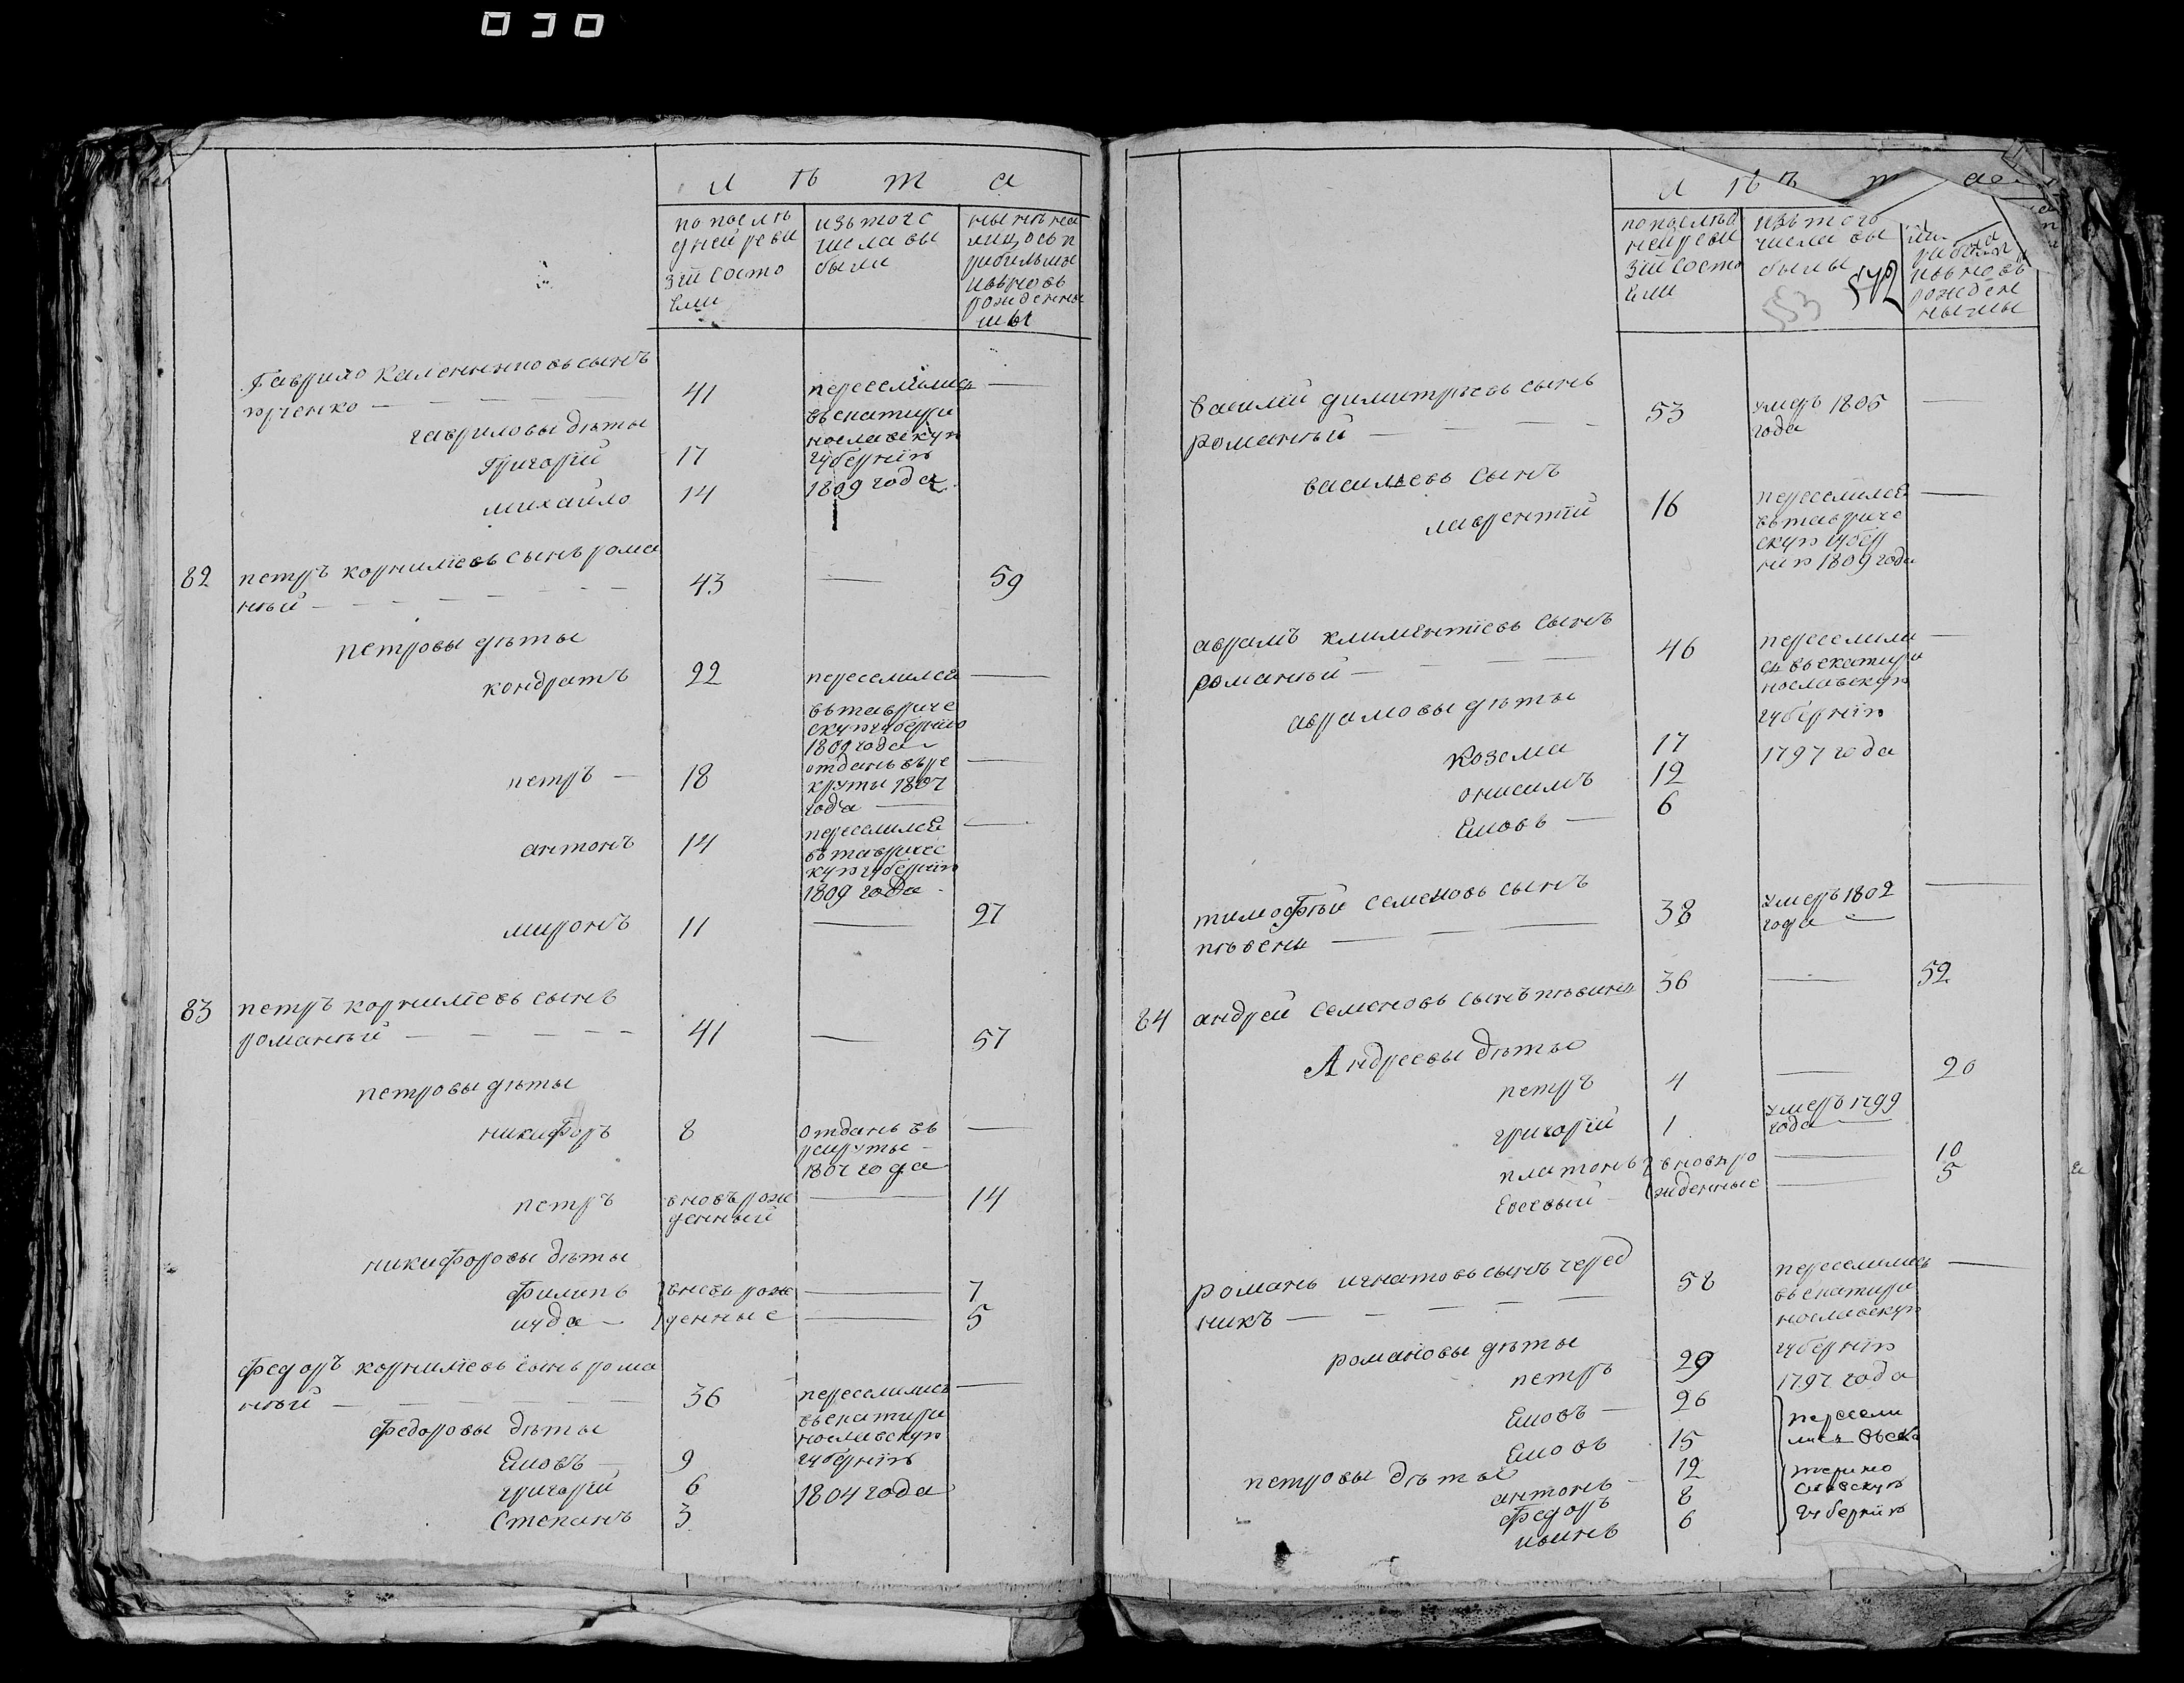 030
лѣта
по послѣ
дней реви
зіи состо
яли
изъ того
числа вы
были
нынѣ на
лицо съ п
рибылым
и вновь
рожденны
мы
Гаврило Калениковъ сынъ
41
переселились
въ екатири
нославскую
губернію
1809 года
—
гавриловы дѣты
Григорій 17
михайло 14
82 петръ корниліевъ сынъ рома
ный — 43 — 59
петровы дѣты
кондратъ 22 переселился —
въ тавриче
скую губернію
1809 года
петръ — 18 отданъ въ ре —
круты 1807
года —
антонъ 14 переселился —
въ тавричес
кую губернію
1809 года
миронъ 11 — 27
83 петръ корниліевъ сынъ
романый — 41 — 57
петровы дѣты
никифоръ 8 отданъ въ —
рекруты
1807 года
петръ вновь рож — 14
денный
никифоровы дѣты
филипъ вновь рож — 7
иуда — денные — 5
федоръ корниліевъ сынъ рома
ный — 36 переселились —
въ екатири
нославскую
федоровы дѣты
Яковъ — 9 губернію
григорій 6 1804 года
Степанъ 3
лѣта
по послѣд
ней реви
зіи состо
яли
изъ того
числа вы
были
553
542
рибылыми
и вновь
рожден
нымы
василій димитріевъ сынъ
романый — 53 умеръ 1805 —
года
васильевъ сынъ
лаврентій 16 переселился —
въ тавриче
скую губер
нію 1809 года
аврамъ климентіевъ сынъ
романый — 46 переселили —
сь въ екатири
нославскую
аврамовы дѣты губернію
козма 17 1797 года
онисимъ 12
Яковъ — 6
тимофѣй семеновъ сынъ
пѣвени — 38 умеръ 1802 —
года —
84 андрей семеновъ сынъ 36 — 52
Андреевы дѣты
петръ 4 — 20
григорій 1 умеръ 1799
года —
платонъ вновь ро — 10
Евсевый — жденные — 5
романъ игнатовъ сынъ черед
никъ — 58 переселились —
въ екатири
нославскую
романовы дѣты губернію
петръ 29 1797 года
Яковъ — 26
Яковъ 15
пересели
лись въ ека
терино
славскую
губернію
петровы дѣты
антонъ — 12
федоръ 8
иванъ 6